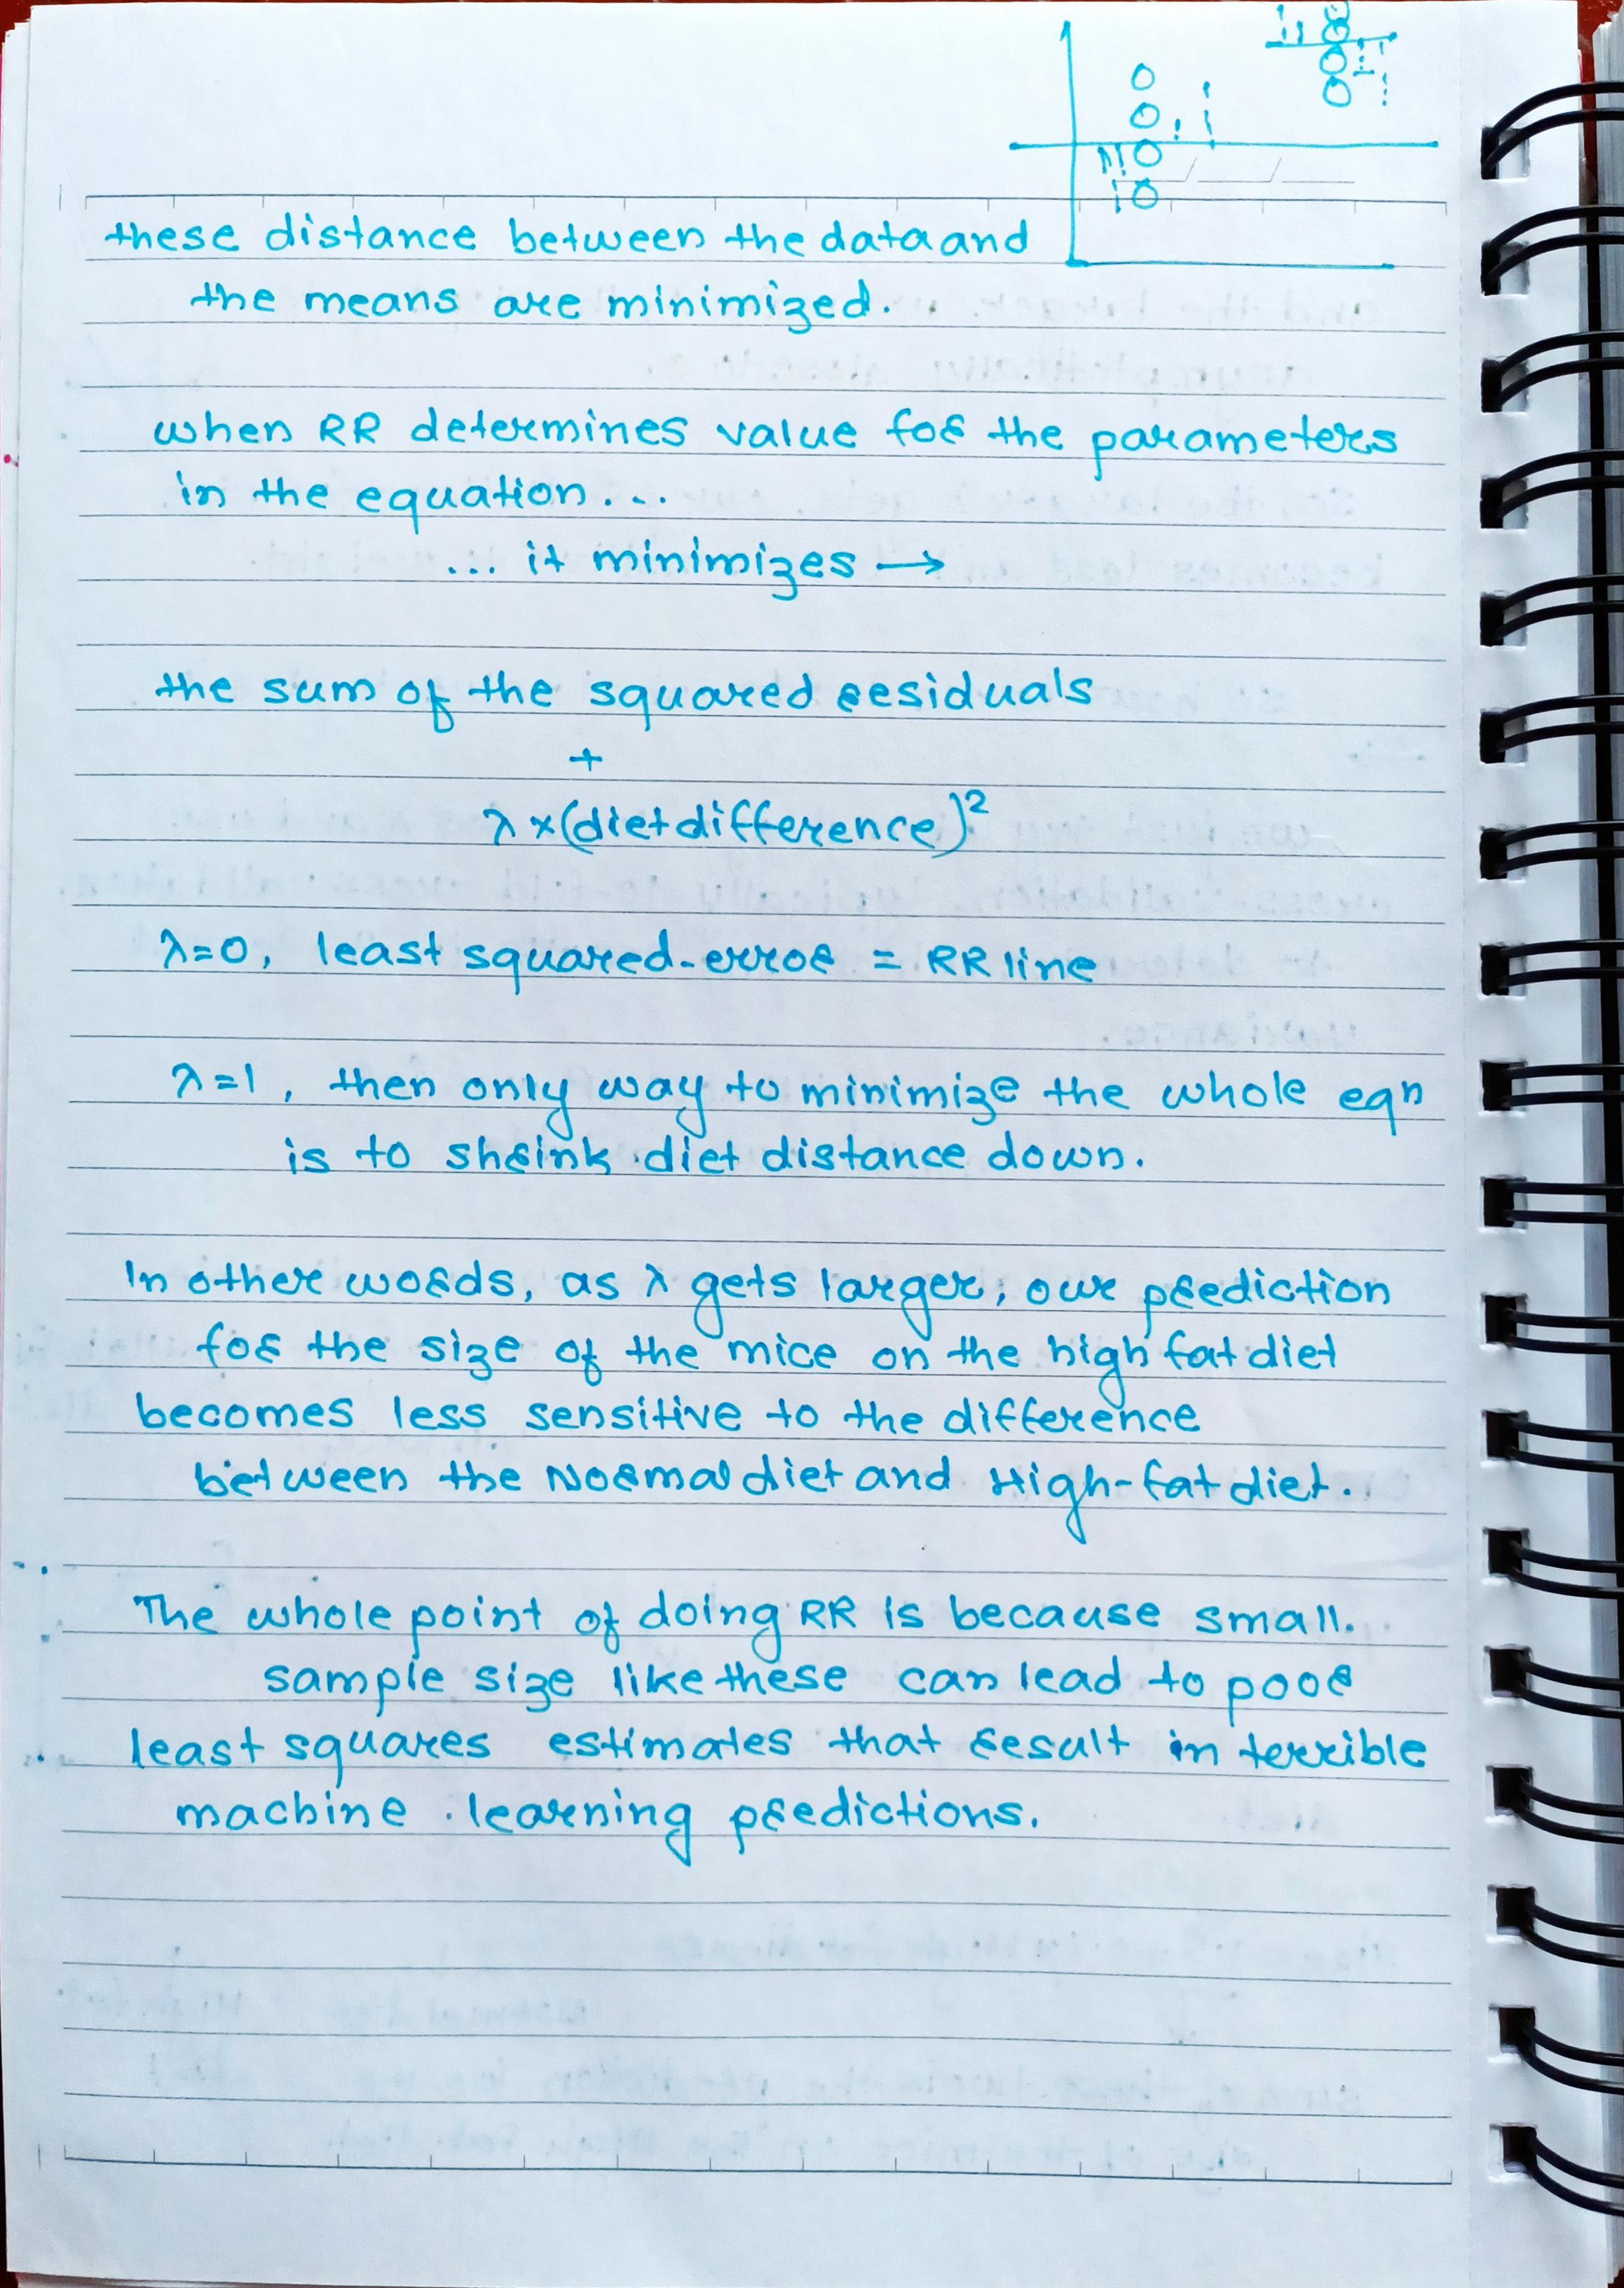 these distance between the data and
the means are minimized.
when RR determines value for the parameters
in the equation...
... it minimizes →
the sum of the squared residuals
+
λ × (diet difference)²
λ=0, least squared-error = RR line
λ=1, then only way to minimize the whole eqn
is to shrink diet distance down.
In other words, as λ gets larger, our prediction
for the size of the mice on the high fat diet
becomes less sensitive to the difference
between the Normal diet and High-fat diet.
The whole point of doing RR is because small
sample size like these can lead to poor
least squares estimates that result in terrible
machine learning predictions.